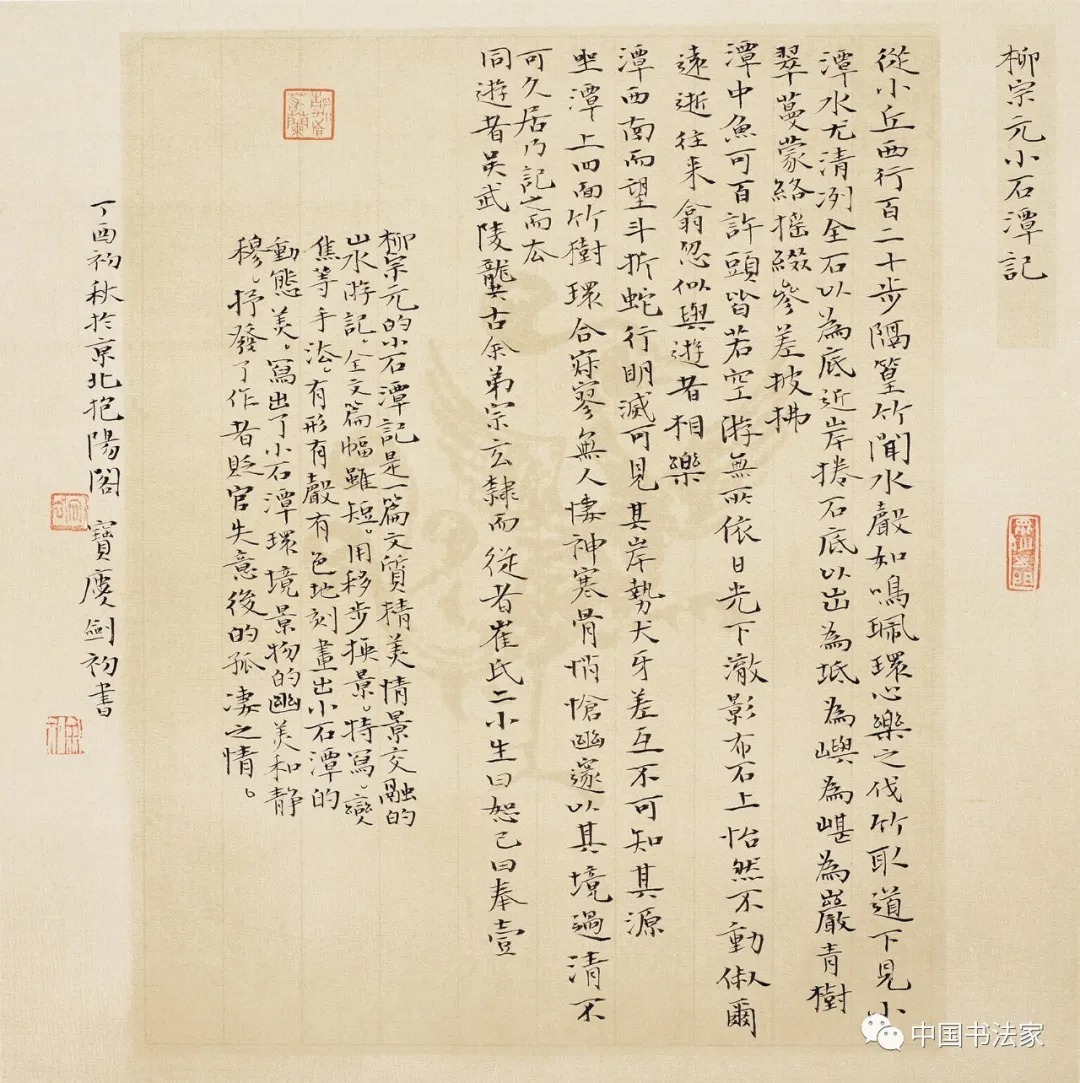 柳宗元小石潭記
從小丘西行百二十步隔篁竹聞水聲如鳴珮環心樂之伐竹取道下見小
潭水尤清冽全石以為底近岸捲石底以出為坻為嶼為嵁為巖青樹
翠蔓蒙絡摇綴參差披拂
潭中魚可百許頭皆若空游無所依日光下澈影布石上怡然不動俶爾
遠逝往来翕忽似與遊者相樂
潭西南而望斗折蛇行明滅可見其岸勢犬牙差互不可知其源
坐潭上四面竹樹環合寂寥無人悽神寒骨悄愴幽邃以其境過清不
可久居乃記之而去
同遊者吴武陵龔古余弟宗玄隸而從者崔氏二小生曰恕己曰奉壹
柳宗元的小石潭記是一篇文質精美情景交融的
山水游記。全文篇幅雖短。用移步换景。特寫。變
焦等手法。有形有聲有色地刻畫出小石潭的
動態美。寫出了小石潭環境景物的幽美和静
穆。抒發了作者貶官失意後的孤凄之情。
丁酉初秋於京北抱陽閣 寶慶劍初書
中国书法家